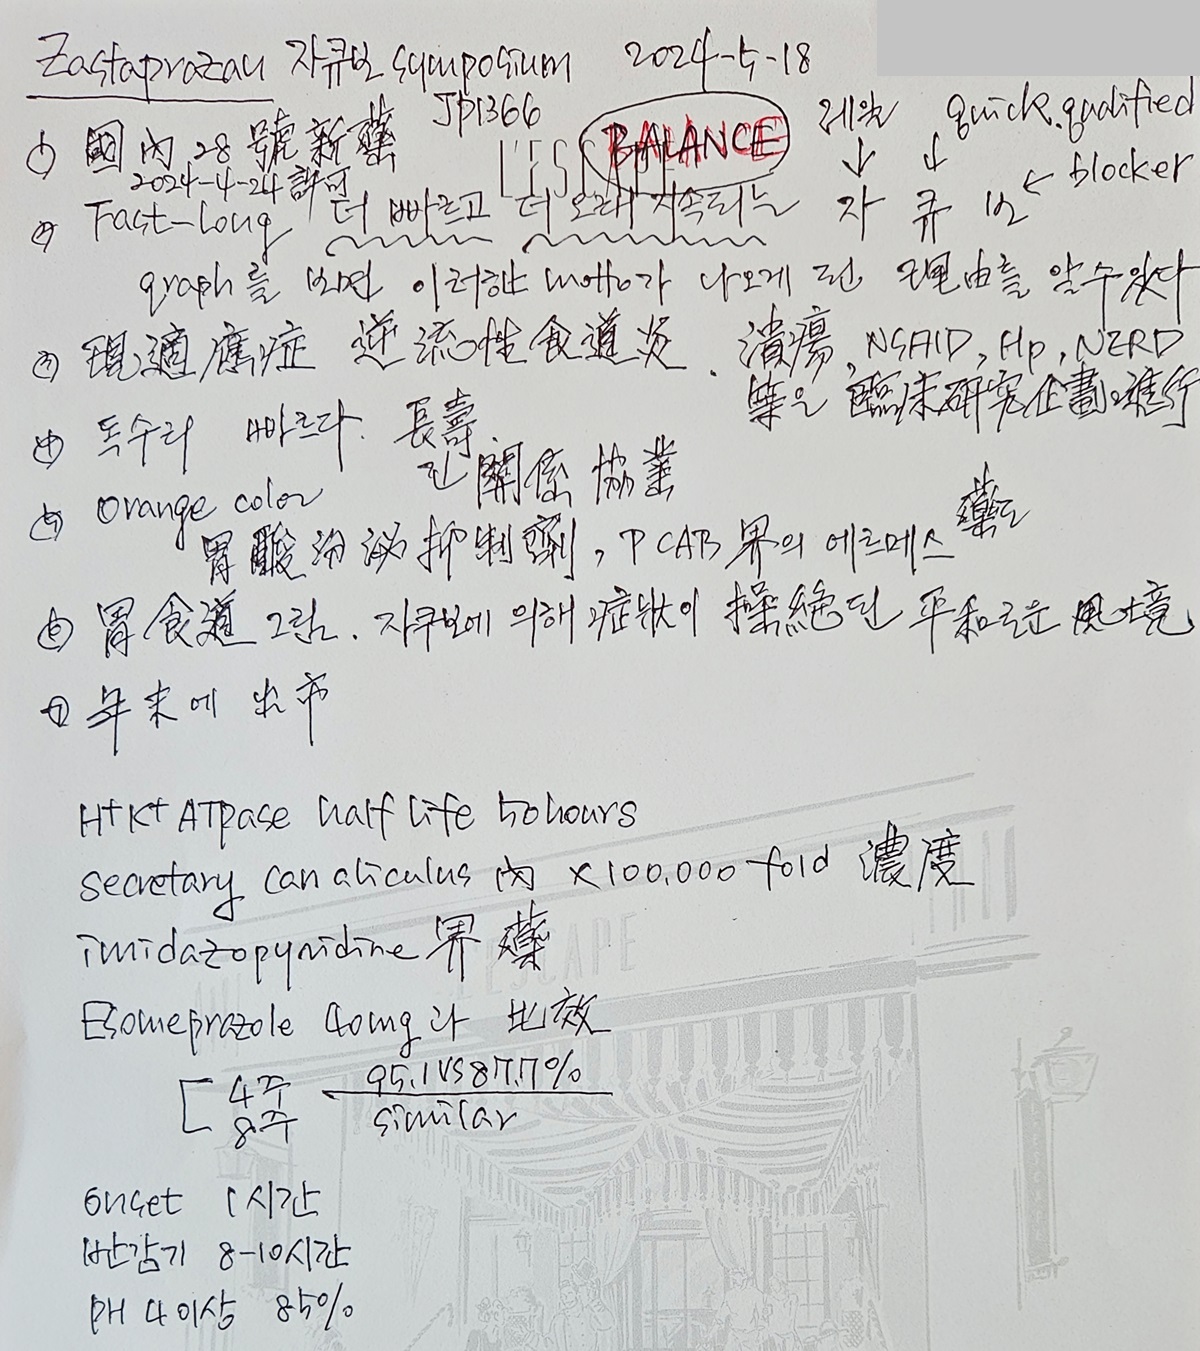 Zastaprazan 자큐보 symposium 2024-5-18
JP1366
BALANCE
quick.qualified
① 國內 28號新藥
2024-4-24 許可
blocker
② Fast-long 더 빠르고 더 오래 지속되는 자 큐 보
graph를 보면 이러한 motto가 나오게 된 理由를 알수있다
③ 現適應症 逆流性食道炎. 潰瘍, NSAID, Hp, NERD
等은 臨床硏究企劃進行
④ 독수리 빠르다. 長壽
關係 協業
⑤ Orange color
胃酸分泌抑制劑, PCAB 界의 에르메스 藥도
⑥ 胃食道 그림. 자큐보에 의해 症狀이 된 平和로운 風境
⑦ 年末에 出市
H+K+ ATPase half life 50hours
secretary canaliculus 內 ×100,000 fold 濃度
imidazopyridine 界 藥
Esomeprazole 40mg과 比效
4주 95.1 VS 87.7%
8주 similar
onset 1시간
반감기 8-10시간
PH 4이상 85%
L'ESCAPE